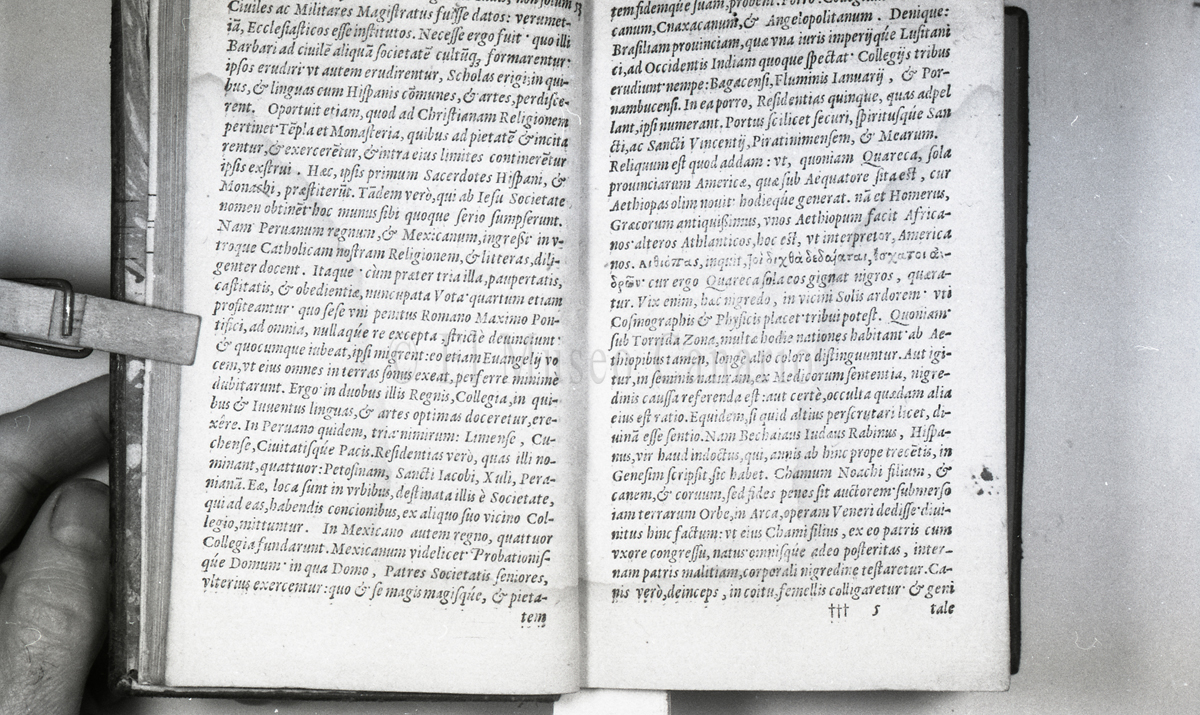 Ciuiles ac Militares Magistratus fuisse datos: verumet-
iã, Ecclesiasticos esse institutos. Necesse ergo fuit · quo illi
Barbari ad ciuilẽ aliquã societatẽ cultũq; formarentur:
ipsos erudiri · vt autem erudirentur, Scholas erigi; in qui-
bus, & linguas cum Hispanis cõmunes, & artes, perdisce-
rent. Oportuit etiam, quod ad Christianam Religionem
pertinet Tẽpla et Monasteria, quibus ad pietatẽ & incita
rentur, & exercerẽtur, & intra eius limites continerẽtur
ipsis exstrui. Hæc, ipsis primum Sacerdotes Hispani, &
Monachi, præstiterũt. Tãdem verò, qui ab Iesu Societate
nomen obtinẽt · hoc munus sibi quoque serio sumpserunt.
Nam Peruanum regnum, & Mexicanum, ingressi · in v-
troque Catholicam nostram Religionem, & litteras, dili-
genter docent. Itaque · cùm præter tria illa, paupertatis,
castitatis, & obedientiæ, nuncupata Vota · quartum etiam
profiteantur · quo sese vni penitus Romano Maximo Pon-
tifici, ad omnia, nullaq́ue re excepta, strictè deuinciunt ·
& quocumque iubeat, ipsi migrent: eo etiam Euangelij vo
cem, vt eius omnes in terras sonus exeat, perferre minimè
dubitarunt. Ergo in duobus illis Regnis, Collegia, in qui-
bus & Iuuentus linguas, & artes optimas doceretur, ere-
xêre. In Peruano quidem, tria · nimirum: Limense, Cu-
chense, Ciuitatisq́ue Pacis. Residentias verò, quas illi no-
minant, quattuor: Petosinam, Sancti Iacobi, Xuli, Pera-
nianã. Eæ, loca sunt in vrbibus, destinata illis è Societate,
qui ad eas, habendis concionibus, ex aliquo suo vicino Col-
legio, mittuntur. In Mexicano autem regno, quattuor
Collegia fundarunt. Mexicanum videlicet · Probationis-
q́ue Domum · in qua Domo, Patres Societatis seniores,
vlterius exercentur: quo & se magis magisq́ue, & pieta-
tem
tem fidemq́ue suam, probent. Porro
canum, Cnaxacanum, & Angelopolitanum. Denique:
Brasiliam prouinciam, quæ vna iuris imperijq́ue Lusitani
ci, ad Occidentis Indiam quoque spectat · Collegijs tribus
erudiunt · nempe: Bagacensi, Fluminis Ianuarij, & Por-
nambucensi. In ea porro, Residentias quinque, quas adpel
lant, ipsi numerant. Portus scilicet securi, spiritusq́ue San
cti, ac Sancti Vincentij, Piratinimensem, & Mearum.
Reliquum est quod addam: vt, quoniam Quareca, sola
prouinciarum Americæ, quæ sub Aequatore sita est, cur
Aethiopas olim nouit · hodieq́ue generat. nã et Homerus,
Græcorum antiquissimus, vnos Aethiopum facit Africa-
nos · alteros Athlanticos, hoc est, vt interpretor, America
nos. Αἰθίοπας, inquit, τοὶ διχθὰ δεδαίαται, ἔσχατοι ἀν-
δρῶν · cur ergo Quareca sola eos gignat nigros, quæra-
tur. Vix enim, hæc nigredo, in vicini Solis ardorem · vti
Cosmographis & Physicis placet · tribui potest. Quoniam ·
sub Torrida Zona, multæ hodie nationes habitant · ab Ae-
thiopibus tamen, longè alio colore distinguuntur. Aut igi-
tur, in seminis naturam, ex Medicorum sententia, nigre-
dinis caussa referenda est: aut certè, occulta quædam alia
eius est ratio. Equidem, si quid altius perscrutari licet, di-
uinã esse sentio. Nam Bechaiaus Iudæus Rabinus, Hispa-
nus, vir haud indoctus, qui, annis ab hinc prope trecẽtis, in
Genesim scripsit, sic habet. Chamum Noachi filium, &
canem, & coruum, sed fides penes sit auctorem · submerso
iam terrarum Orbe, in Arca, operam Veneri dedisse · diui-
nitus hinc factum: vt eius Chami filius, ex eo patris cum
vxore congressu, natus · omnisq́ue adeo posteritas, inter-
nam patris malitiam, corporali nigredine testaretur. Ca-
nis verò, deinceps, in coitu, femellis colligaretur · & geni
††† 5 tale